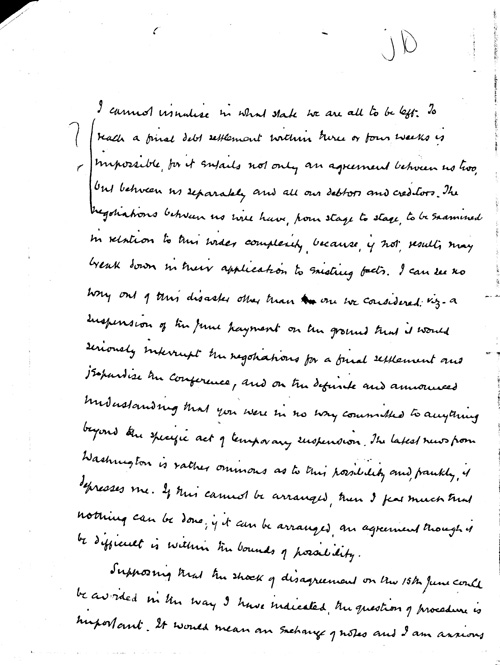 jD
I cannot visualise in what state we are all to be left. To
reach a final debt settlement within three or four weeks is
impossible, for it entails not only an agreement between us two,
but between us separately and all our debtors and creditors. The
negotiations between us will have, from stage to stage, to be examined
in relation to this wider complexity, because, if not, results may
break down in their application to existing facts. I can see no
way out of this disaster other than one we considered: viz - a
suspension of the June payment on the ground that it would
seriously interrupt the negotiations for a final settlement and
jeopardise the Conference, and on the definite and announced
understanding that you were in no way committed to anything
beyond the specific act of temporary suspension. The latest news from
Washington is rather ominous as to this possibility and, frankly, it
depresses me. If this cannot be arranged, then I fear much that
nothing can be done; if it can be arranged, an agreement though it
be difficult is within the bounds of possibility.
Supposing that the shock of disagreement on the 15th June could
be avoided in the way I have indicated, the question of procedure is
important. It would mean an exchange of notes and I am anxious